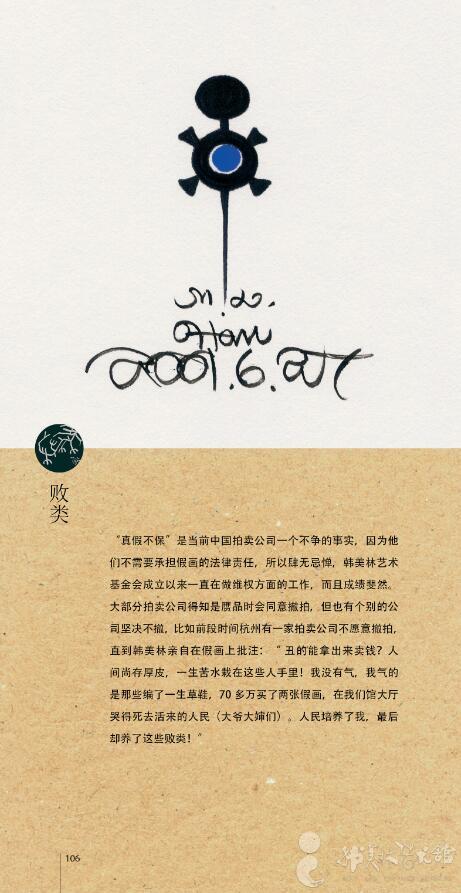 m.l.
Han
2001.6.
败类
“真假不保”是当前中国拍卖公司一个不争的事实，因为他
们不需要承担假画的法律责任，所以肆无忌惮，韩美林艺术
基金会成立以来一直在做维权方面的工作，而且成绩斐然。
大部分拍卖公司得知是赝品时会同意撤拍，但也有个别的公
司坚决不撤，比如前段时间杭州有一家拍卖公司不愿意撤拍，
直到韩美林亲自在假画上批注：“丑的能拿出来卖钱？人
间尚存厚皮，一生苦水栽在这些人手里！我没有气，我气的
是那些编了一生草鞋，70 多万买了两张假画，在我们馆大厅
哭得死去活来的人民（大爷大婶们）。人民培养了我，最后
却养了这些败类！”
106